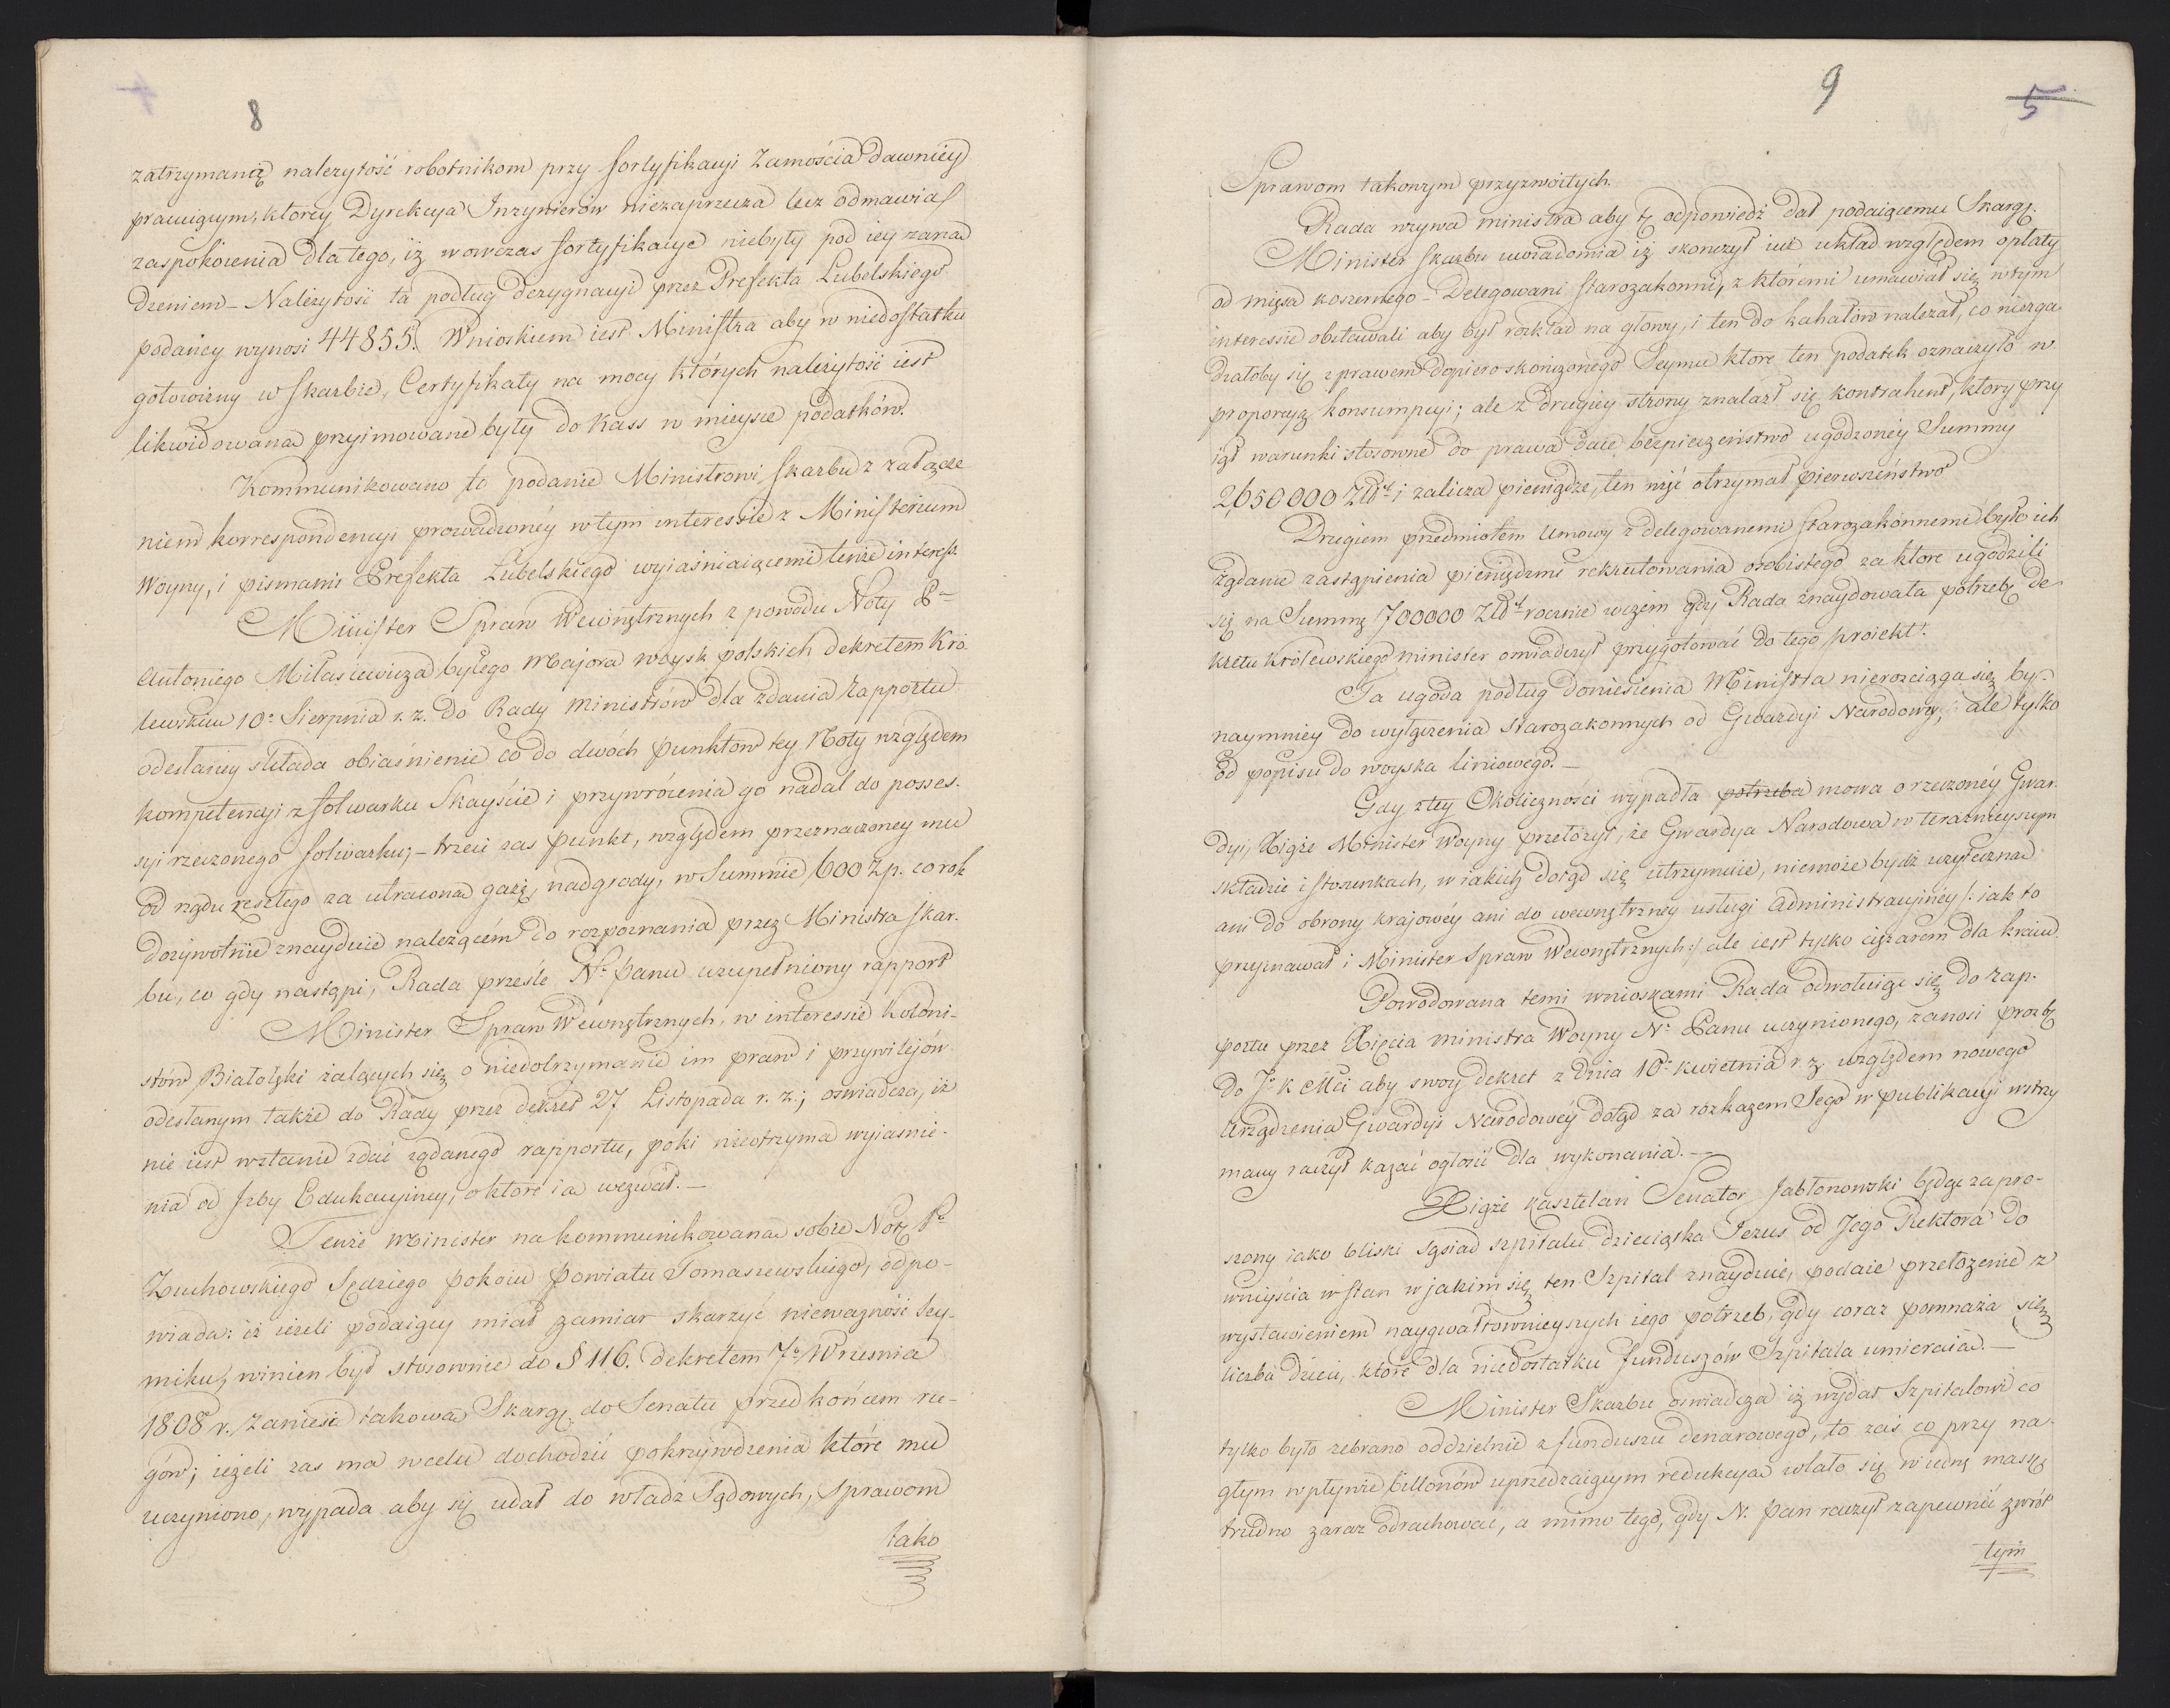 8
zatrzymaną należytość robotnikom przy fortyfikacyi Zamościa dawniey
pracuiącym, ktorey Dyrekcya Inżynierów niezaprzecza lecz odmawia
zaspokoienia dla tego, iż wowczas fortyfikacye niebyły pod iey zarzą
dzeniem – Należytość ta podług dezygnacyi przez Prefekta Lubelskiego
podaney wynosi 44855. Wnioskiem iest Ministra aby w niedostatku
gotowizny w Skarbie, Certyfikaty na mocy których należytość iest
likwidowana przyimowane były do Kass w mieysce podatków.
Kommunikowano to podanie Ministrowi Skarbu z załącze
niem korrespondencyi prowadzonéy w tym interessie z Ministerium
Woyny, i pismami Prefekta Lubelskiego wyiaśniaiącemi tenże interess.
Minister Spraw Wewnętrznych z powodu Noty P.
Antoniego Miłasiewicza byłego Majora woysk polskich dekretem Kró
lewskim 10. Sierpnia r. z. do Rady Ministrów dla zdania Rapportu
odesłaney składa obiaśnienie co do dwóch punktow tey Noty względem
kompetencyi z folwarku Skayście i przywrócenia go nadal do posses-
syi rzeczonego folwarku; – trzeci zas punkt, względem przeznaczoney mu
od rządu zeszłego za utracona gażę, nadgrody, w Summie 600 Zp. co rok
dożywotnie znayduie należącém do rozpoznania przez Ministra Skar-
bu, co gdy nastąpi, Rada prześle N. Panu uzupełniony rapport
Minister Spraw Wewnętrznych, w interessie Koloni-
stów Białołęki żalących się o niedotrzymanie im praw i przywilejów
odesłanym także do Rady przez dekret 27 Listopada r. z.; oswiadcza, iż
nie iest wstanie zdać żądanego rapportu, poki nieotrzyma wyiasnie-
nia od Izby Edukacyiney, o ktore ia wezwał. –
Tenże Minister na kommunikowana sobie Notę P.
Żuchowskiego Sędziego pokoiu powiatu Tomaszewskiego, odpo-
wiada: iż ieżeli podaiący miał zamiar skarżyć nieważność Sey-
miku, winien był stosownie do § 116. dekretem 7. Wrzesnia
1808 r. zaniesć takowa Skargę do Senatu przed końcem ru-
gów; ieżeli zas ma w celu dochodzić pokrzywdzenia które mu
uczyniono, wypada aby się udał do władz Sądowych, Sprawom
tako
9
5
Sprawom takowym przyzwoitych.
Rada wzywa ministra aby tę odpowiedź dał podaiącemu Skargę.
Minister Skarbu uwiadomia iż skonczył iuż układ względem opłaty
od mięsa koszernego – Delegowani starozakonni, z któremi umawiał się w tym
interessie obstawali aby był rozkład na głowy, i ten do kahałów należał, co niezga
dzałoby się z prawem dopiero skończonego Seymu ktore ten podatek oznaczyło w
proporcyą konsumpcyi; ale z drugiey strony znalazł się kontrahent, ktory przy
iął warunki stosowne do prawa daie bezpieczeństwo ugodzonéy Summy
2650000 Złt. i zalicza pieniądze, ten więc otrzymał pierwszeństwo
Drugiem przedmiotem umowy z delegowanemi starozakonnemi było ich
żądanie zastąpienia pieniędzmi rekrutowania osobistego za ktore ugodzili
się na Summę 700000 Złt. rocznie wczém gdy Rada znaydowała potrzebę de
kretu Królewskiego minister oswiadczył przygotować do tego proiekt.
Ta ugoda podług doniesienia Ministra nierozciąga się by-
naymniey do wyłączenia starozakonnych od Gwardyi Narodowey, ale tylko
od popisu do woyska liniowego. –
Gdy z tey okoliczności wypadła potrzeba mowa o rzeczonéy Gwar-
dyi, Xiąże Minister Woyny przełożył, że Gwardya Narodowa w teraźnieyszym
składzie i stosunkach, w iakich dotąd się utrzymuie, niemoże bydź użyteczna
ani do obrony krajowéy ani do wewnętrzney usługi administracyiney /: iak to
przyznawał i Minister Spraw Wewnętrznych :/ ale iest tylko ciężarem dla kraiu
Powodowana temi wnioskami Rada odwołuiąc się do rap-
portu przez Xięcia ministra Woyny N. Panu uczynionego, zanosi prozbę
do J. K Mci aby swoy dekret z dnia 10. kwietnia r. z. względem nowego
urządzenia Gwardyi Narodowéy dotąd za rozkazem Jego w publikacyi wstrzy
many raczył kazać ogłosić dla wykonania. –
Xiąże kasztelan Senator Jabłonowski będąc zapro-
szony iako bliski sąsiad szpitalu dzieciątka Jezus od Jego Rektora do
wnijścia w stan w jakim się ten Szpital znayduie, podaie przełożenie z
wystawieniem naygwałtownieyszych iego potrzeb, gdy coraz pomnaża się
liczba dzieci, ktore dla niedostatku funduszów Szpitala umieraia. –
Minister Skarbu oswiadcza iż wydał Szpitalowi co
tylko było zebrano oddzielnie z funduszu denarowego, to zaś co przy na-
głym wpływie billonów uprzedzaiącym redukcya wlało się w iednę massę
trudno zaraz odrachować, a mimo tego, gdy N. Pan raczył zapewnić zwrót
tym